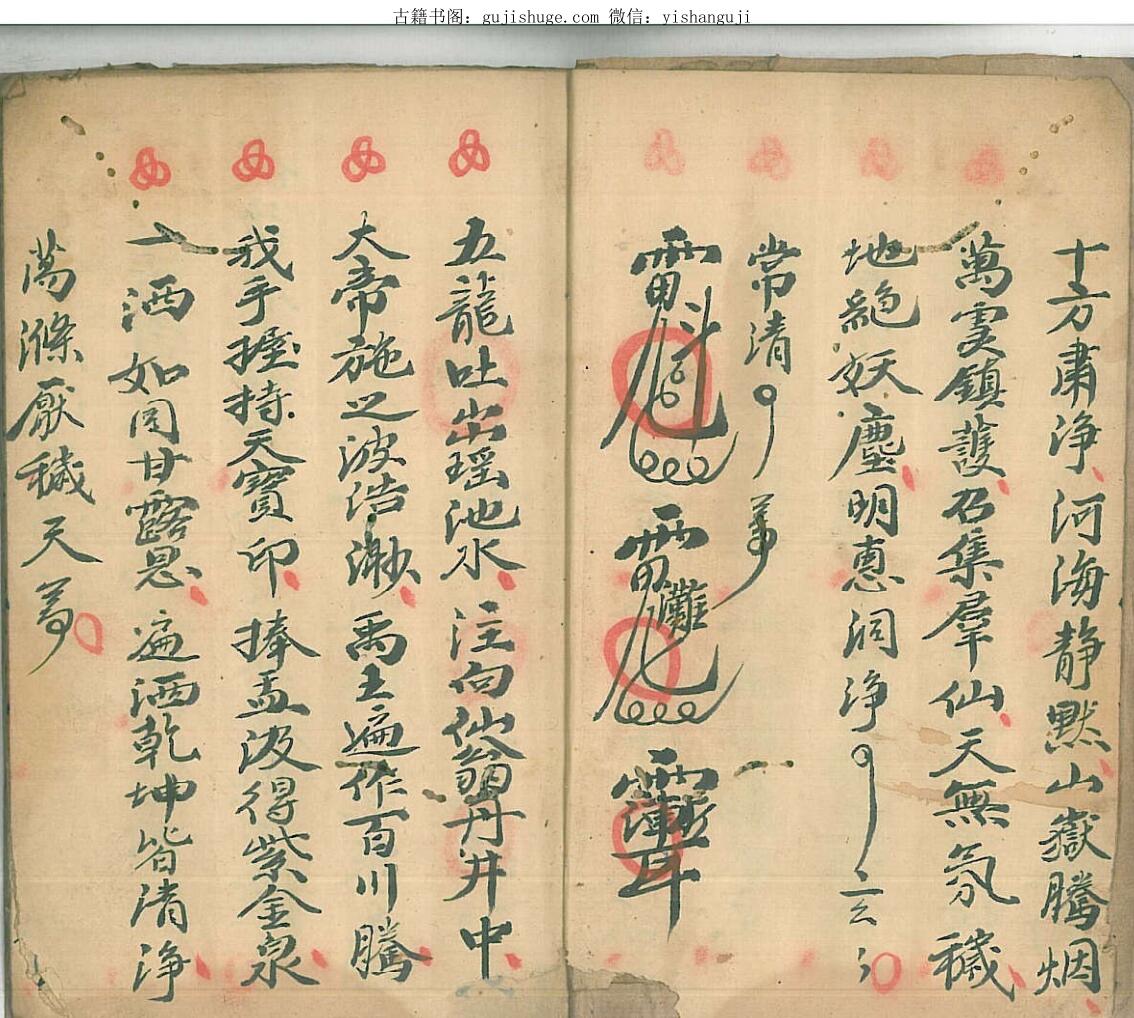 古籍书阁：gujishuge.com 微信：yishanguji
十方肅净河海静默山嶽騰烟
萬灵鎮護召集羣仙天無氛穢
地絶妖塵明惠洞净
常清
五龍吐出瑶池水注向仙翁丹井中
大帝施之波浩渺禹王遍作百川騰
我手握持天寳印捧盂汲得紫金泉
一洒如同甘露恩遍洒乾坤皆清净
萬滌厭穢天